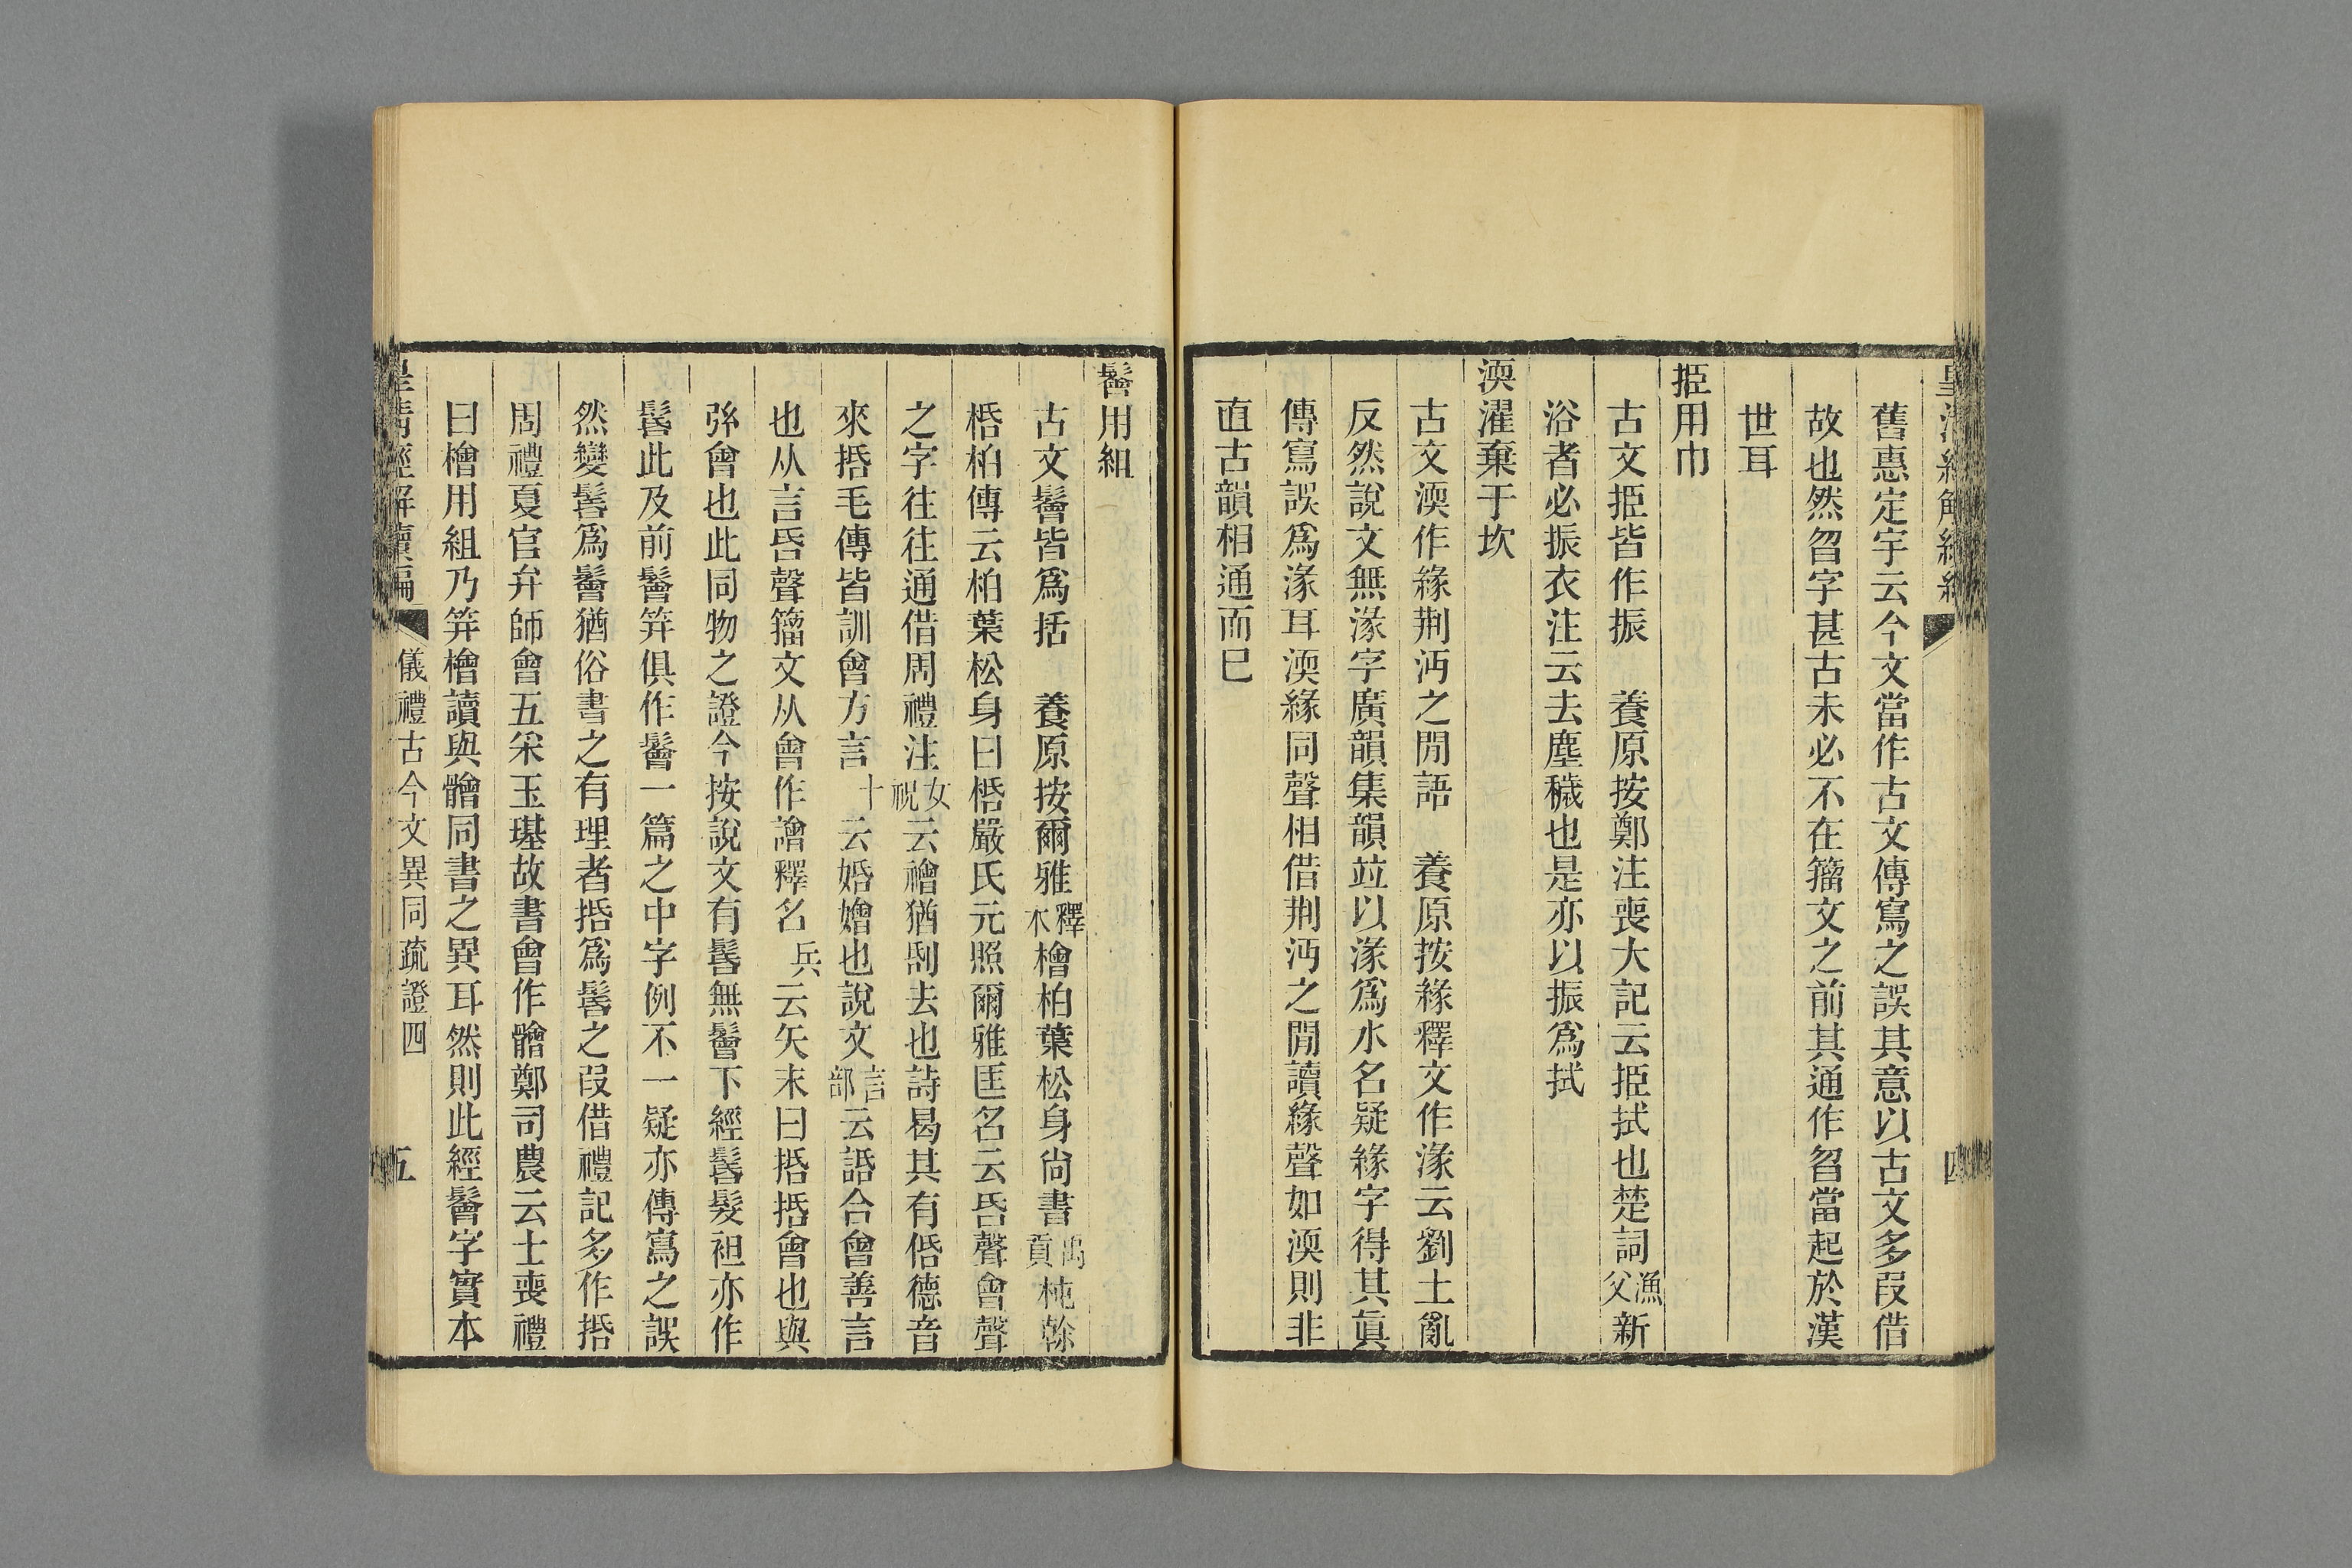 舊惠定宇云今文當作古文傳寫之誤其意以古文多叚借
故也然曶字甚古未必不在籀文之前其通作曶當起於漢
世耳
挋用巾
古文挋皆作振　養原按鄭注喪大記云挋拭也楚詞漁父新
浴者必振衣注云去塵穢也是亦以振爲拭
渜濯棄于坎
古文渜作緣荆沔之閒語　養原按緣釋文作湪云劉土亂
反然說文無湪字廣韻集韻竝以湪爲水名疑緣字得其眞
傳寫誤爲湪耳渜緣同聲相借荆沔之閒讀緣聲如渜則非
直古韻相通而已
四
鬠用組
古文鬠皆爲括　養原按爾雅釋木檜柏葉松身尙書禹貢杶榦
栝柏傳云柏葉松身曰栝嚴氏元照爾雅匡名云𠯑聲會聲
之字往往通借周禮注女祝云禬猶刮去也詩曷其有佸德音
來括毛傳皆訓會方言十云婚嬒也說文言部云話合會善言
也从言𠯑聲籀文从會作譮釋名兵云矢末曰栝栝會也與
弦會也此同物之證今按說文有髺無鬠下經髺髮袒亦作
髺此及前鬠笄俱作鬠一篇之中字例不一疑亦傳寫之誤
然變髺爲鬠猶俗書之有理者括爲髺之叚借禮記多作括
周禮夏官弁師會五采玉璂故書會作䯤鄭司農云士喪禮
曰檜用組乃笄檜讀與䯤同書之異耳然則此經鬠字實本
皇淸經解續編　儀禮古今文異同疏證四　五